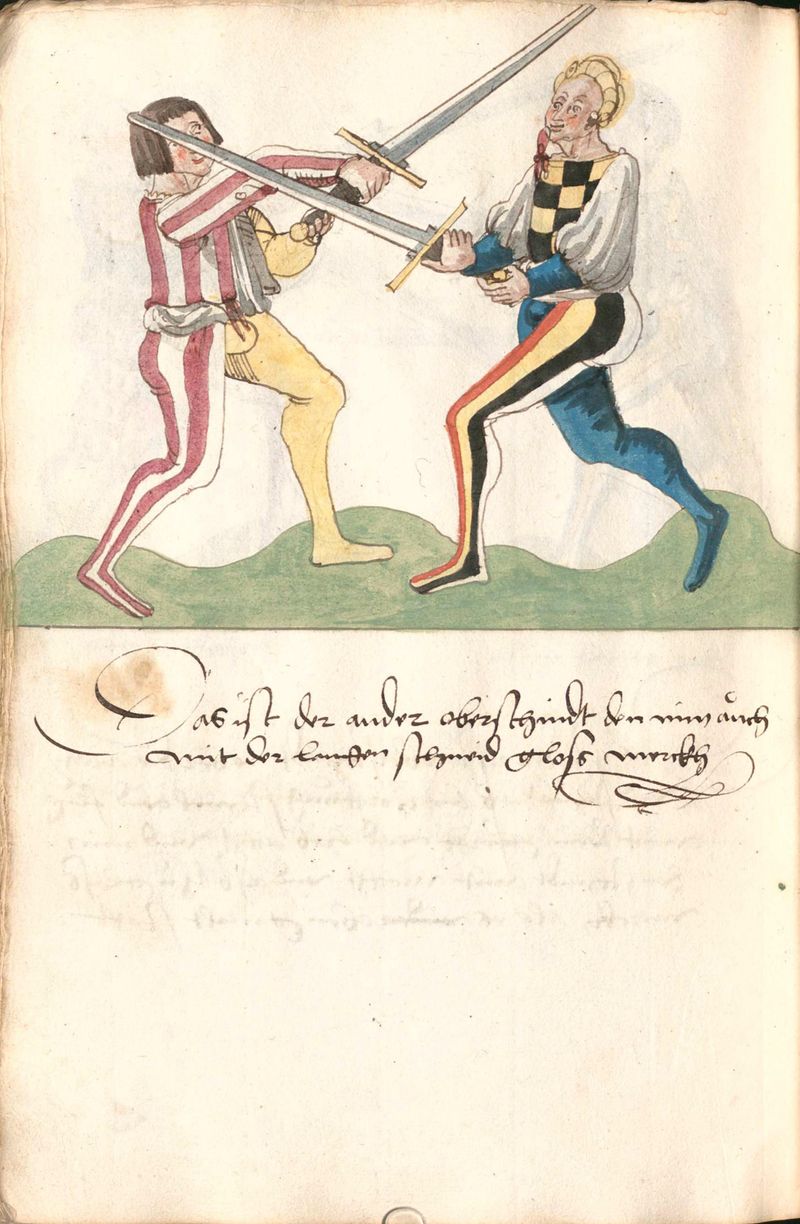 Das ist der ander oberschindt den nim auch
mit der langen schneid gloss merckh